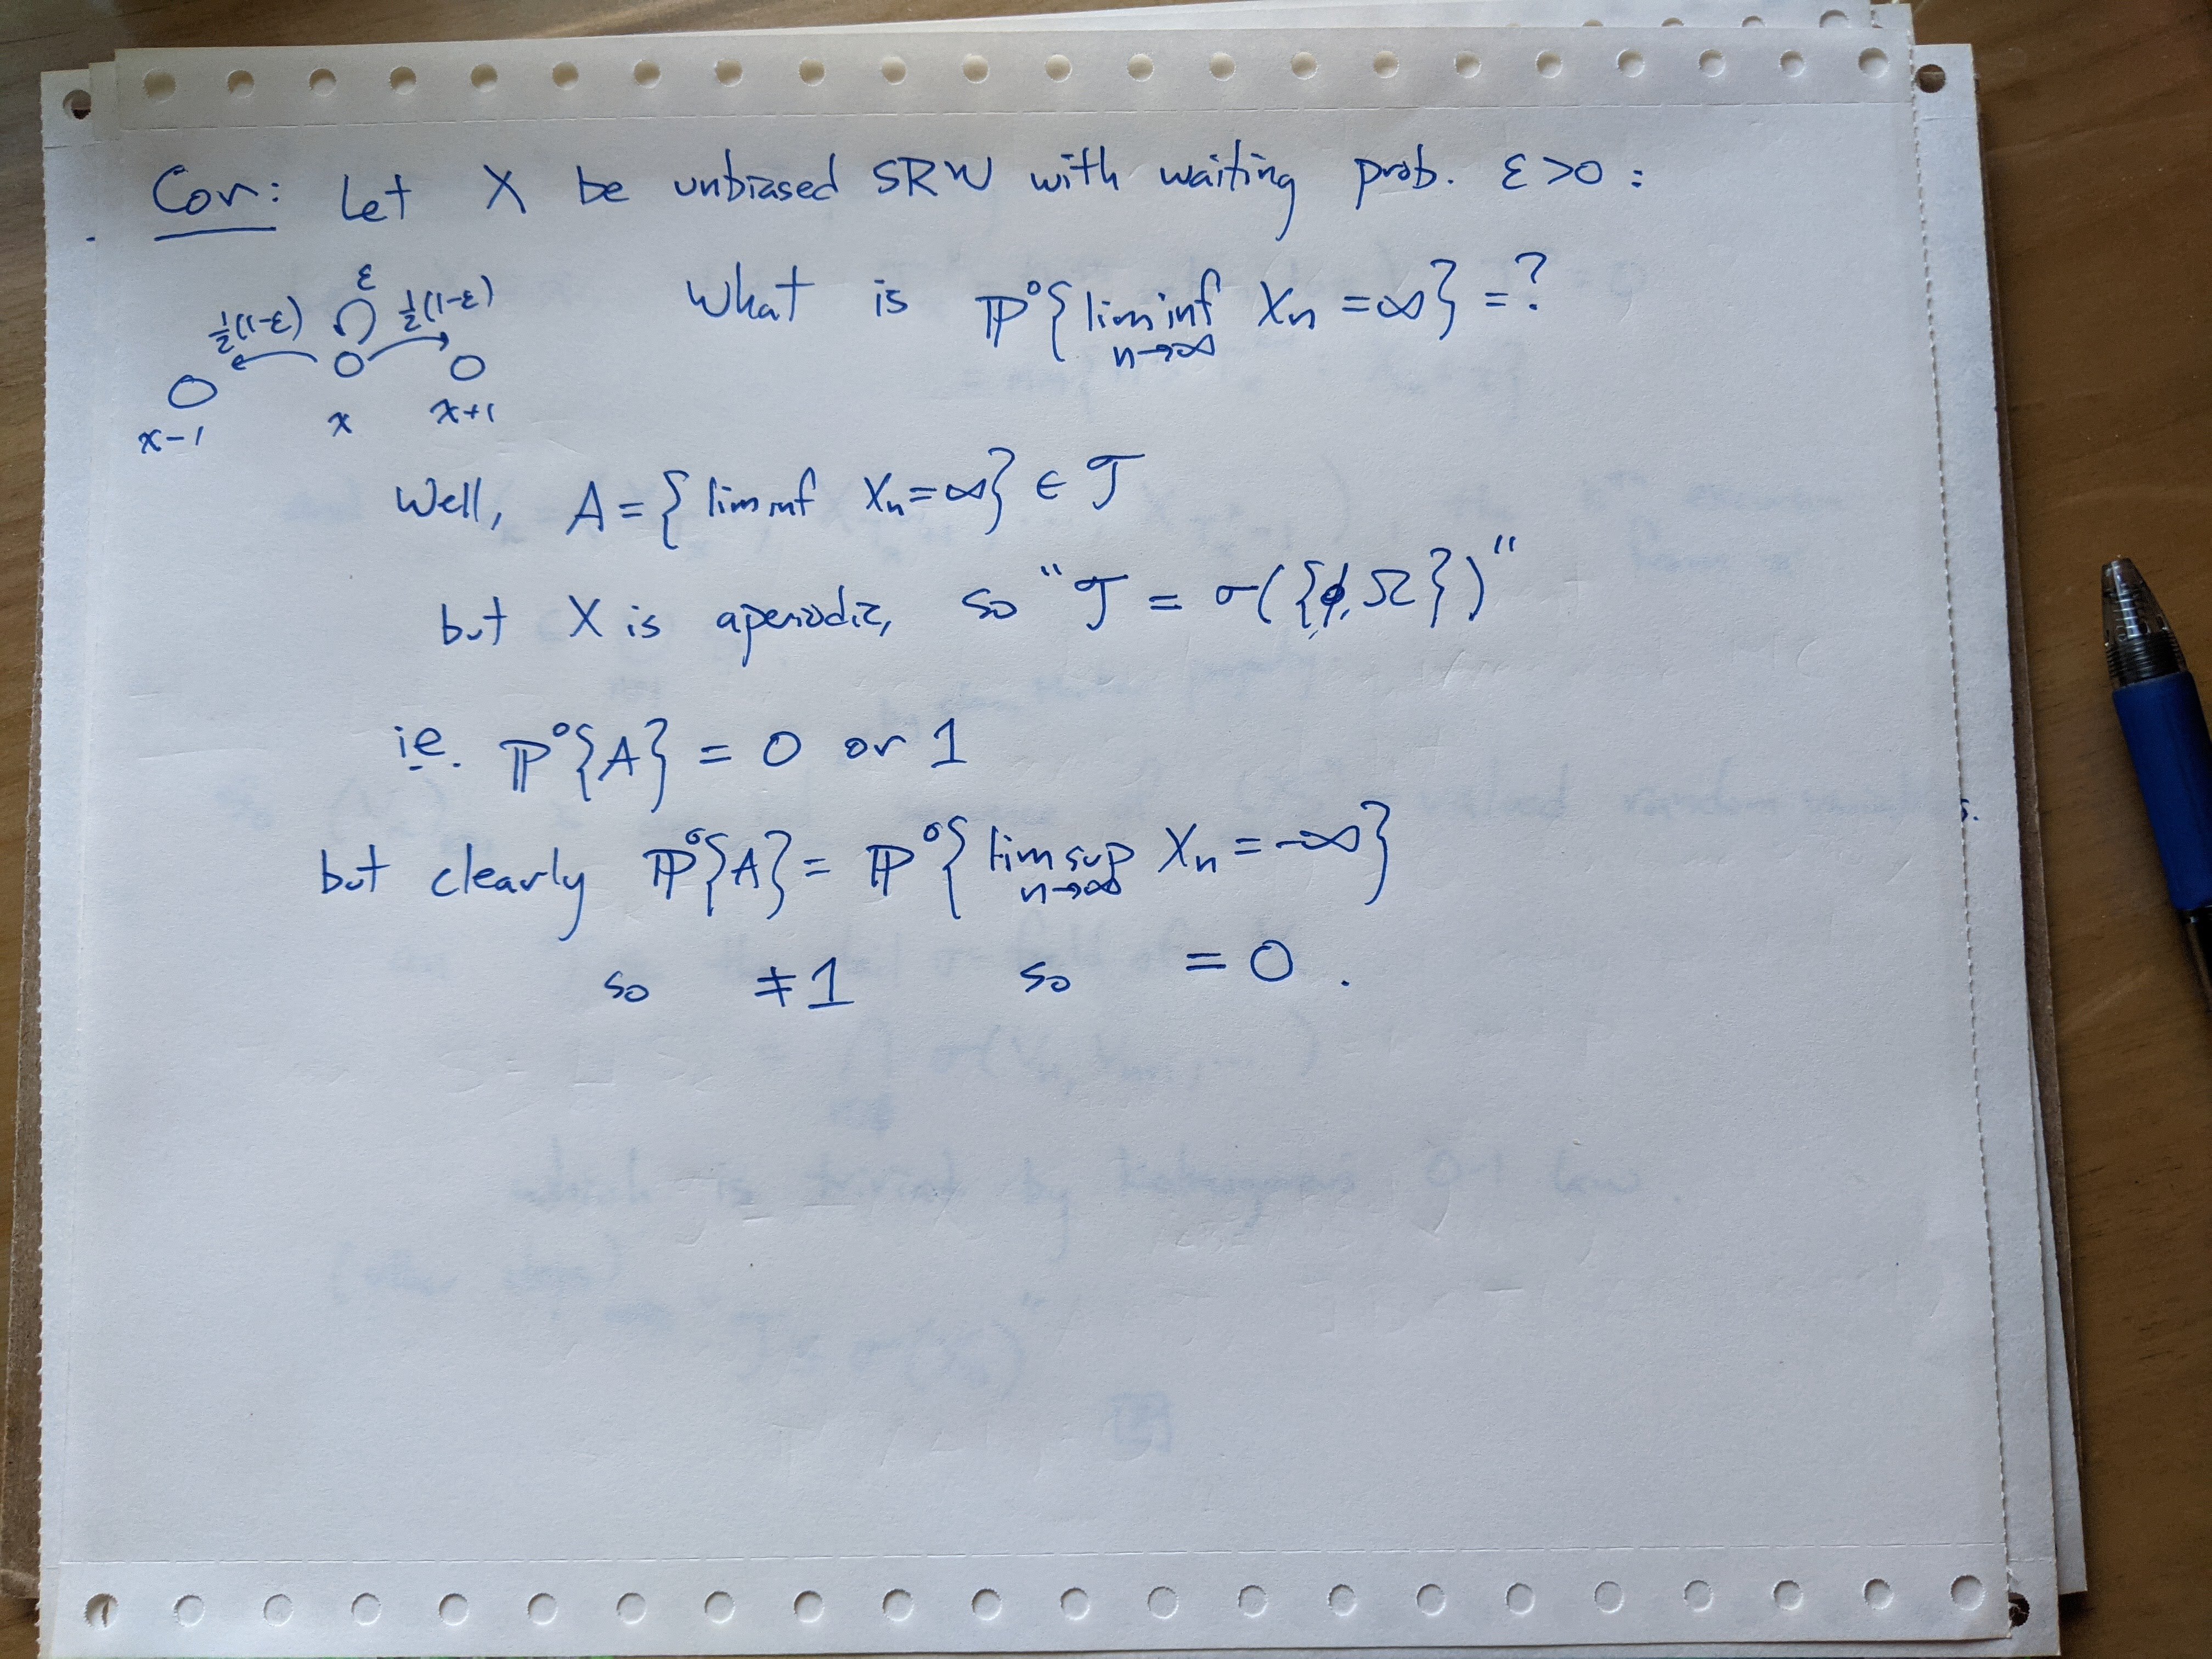 Cor: Let X be unbiased SRW with waiting prob. ε>0:
ε
½(1-ε) ½(1-ε)
x-1 x x+1
What is ℙ⁰{liminf Xn = ∞} = ?
n→∞
Well, A = {liminf Xn = ∞} ∈ 𝒯
but X is aperiodic, so "𝒯 = σ({ϕ, Ω})"
ie. ℙ⁰{A} = 0 or 1
but clearly ℙ⁰{A} = ℙ⁰{limsup Xn = -∞}
n→∞
so ≠ 1 so = 0.